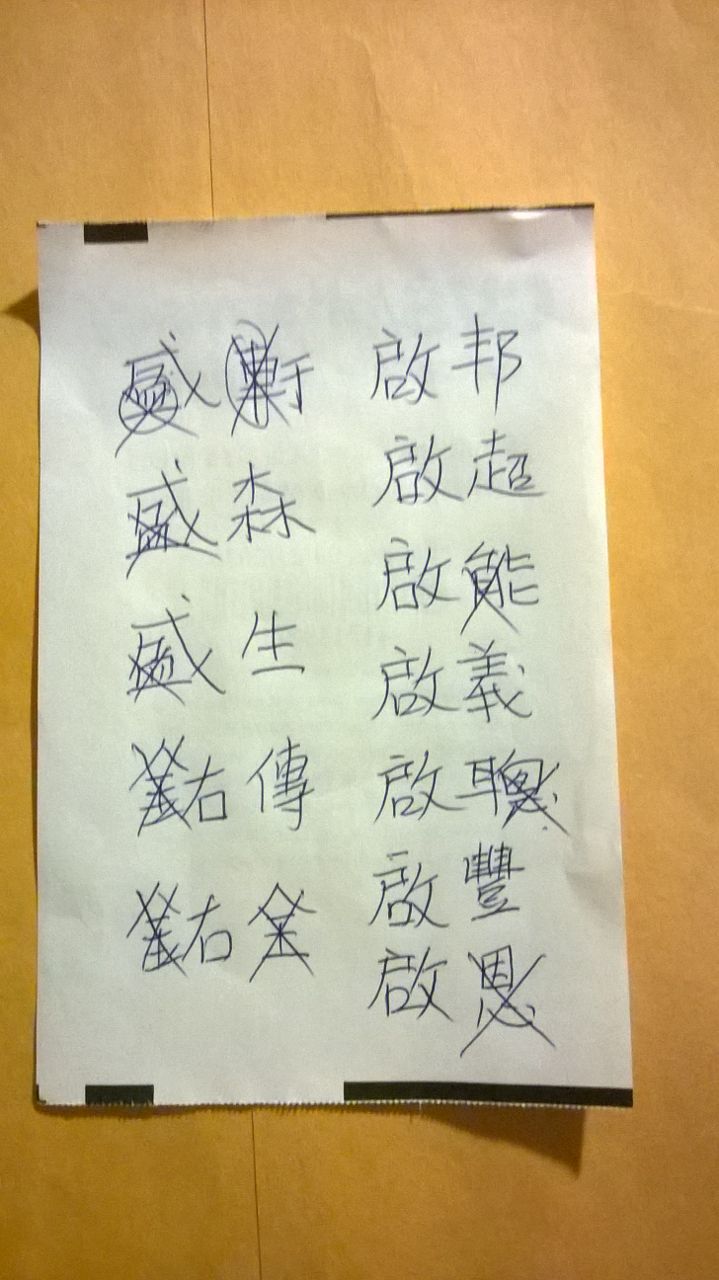 盛
盛 森
盛 生
右 傳
右 金
啟 邦
啟 超
啟 能
啟 義
啟 聰
啟 豐
啟 恩